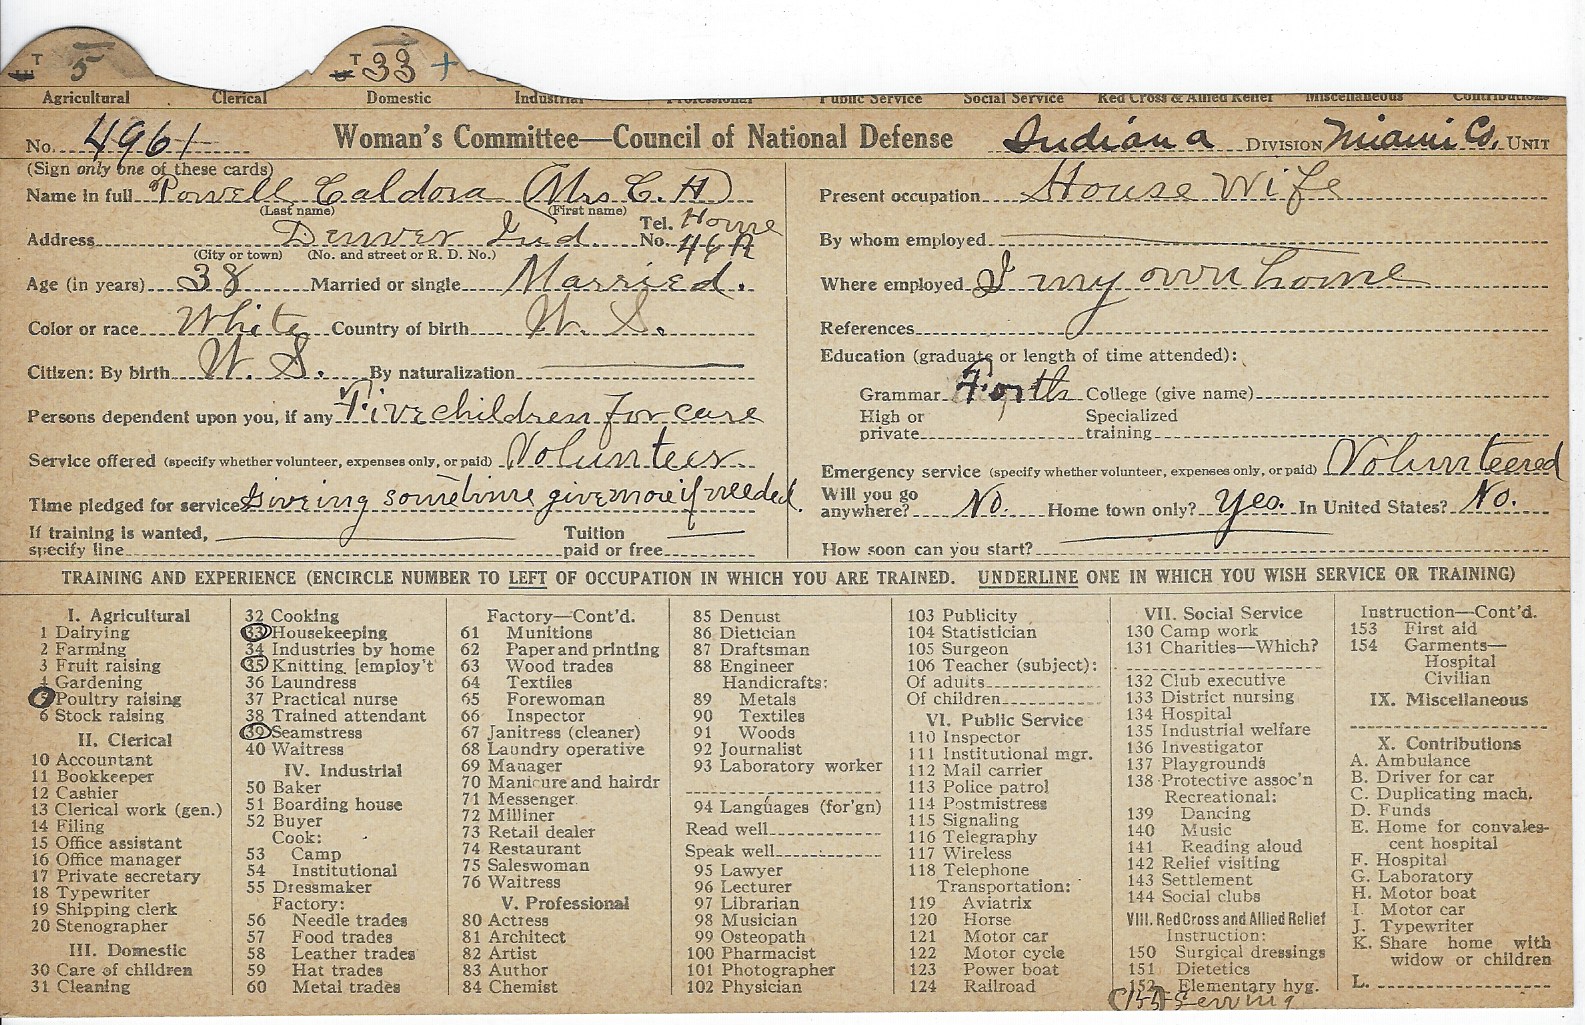 T 5 T 33 +
Agricultural Clerical Domestic Industrial Professional Public Service Social Service Red Cross & Allied Relief Miscellaneous Contributions
No. 4961 Woman's Committee—Council of National Defense Indiana DIVISION Miami Co. UNIT
(Sign only one of these cards)
Name in full Powell Caldora (Mrs C. H)
(Last name) (First name)
Address Denver Ind. Tel. No. Home 46A
(City or town) (No. and street or R. D. No.)
Age (in years) 38 Married or single Married.
Color or race White Country of birth U. S.
Citizen: By birth U. S. By naturalization
Persons dependent upon you, if any Five children for care
Service offered (specify whether volunteer, expenses only, or paid) Volunteer
Time pledged for service Giveing sometime give more if needed.
If training is wanted, specify line Tuition paid or free
Present occupation House Wife
By whom employed
Where employed I my own home
References
Education (graduate or length of time attended):
Grammar Forth College (give name)
High or private Specialized training
Emergency service (specify whether volunteer, expenses only, or paid) Volunteered
Will you go anywhere? No. Home town only? Yes. In United States? No.
How soon can you start?
TRAINING AND EXPERIENCE (ENCIRCLE NUMBER TO LEFT OF OCCUPATION IN WHICH YOU ARE TRAINED. UNDERLINE ONE IN WHICH YOU WISH SERVICE OR TRAINING)
I. Agricultural
1 Dairying
2 Farming
3 Fruit raising
4 Gardening
5 Poultry raising
6 Stock raising
II. Clerical
10 Accountant
11 Bookkeeper
12 Cashier
13 Clerical work (gen.)
14 Filing
15 Office assistant
16 Office manager
17 Private secretary
18 Typewriter
19 Shipping clerk
20 Stenographer
III. Domestic
30 Care of children
31 Cleaning
32 Cooking
33 Housekeeping
34 Industries by home
35 Knitting [employ't
36 Laundress
37 Practical nurse
38 Trained attendant
39 Seamstress
40 Waitress
IV. Industrial
50 Baker
51 Boarding house
52 Buyer
Cook:
53 Camp
54 Institutional
55 Dressmaker
Factory:
56 Needle trades
57 Food trades
58 Leather trades
59 Hat trades
60 Metal trades
Factory—Cont'd.
61 Munitions
62 Paper and printing
63 Wood trades
64 Textiles
65 Forewoman
66 Inspector
67 Janitress (cleaner)
68 Laundry operative
69 Manager
70 Manicure and hairdr
71 Messenger
72 Milliner
73 Retail dealer
74 Restaurant
75 Saleswoman
76 Waitress
V. Professional
80 Actress
81 Architect
82 Artist
83 Author
84 Chemist
85 Dentist
86 Dietician
87 Draftsman
88 Engineer
Handicrafts:
89 Metals
90 Textiles
91 Woods
92 Journalist
93 Laboratory worker
94 Languages (for'gn)
Read well
Speak well
95 Lawyer
96 Lecturer
97 Librarian
98 Musician
99 Osteopath
100 Pharmacist
101 Photographer
102 Physician
103 Publicity
104 Statistician
105 Surgeon
106 Teacher (subject):
Of adults
Of children
VI. Public Service
110 Inspector
111 Institutional mgr.
112 Mail carrier
113 Police patrol
114 Postmistress
115 Signaling
116 Telegraphy
117 Wireless
118 Telephone
Transportation:
119 Aviatrix
120 Horse
121 Motor car
122 Motor cycle
123 Power boat
124 Railroad
VII. Social Service
130 Camp work
131 Charities—Which?
132 Club executive
133 District nursing
134 Hospital
135 Industrial welfare
136 Investigator
137 Playgrounds
138 Protective assoc'n
Recreational:
139 Dancing
140 Music
141 Reading aloud
142 Relief visiting
143 Settlement
144 Social clubs
VIII. Red Cross and Allied Relief
Instruction:
150 Surgical dressings
151 Dietetics
152 Elementary hyg.
(155) Serving
Instruction—Cont'd.
153 First aid
154 Garments—
Hospital
Civilian
IX. Miscellaneous
X. Contributions
A. Ambulance
B. Driver for car
C. Duplicating mach.
D. Funds
E. Home for convales-
cent hospital
F. Hospital
G. Laboratory
H. Motor boat
I. Motor car
J. Typewriter
K. Share home with
widow or children
L.